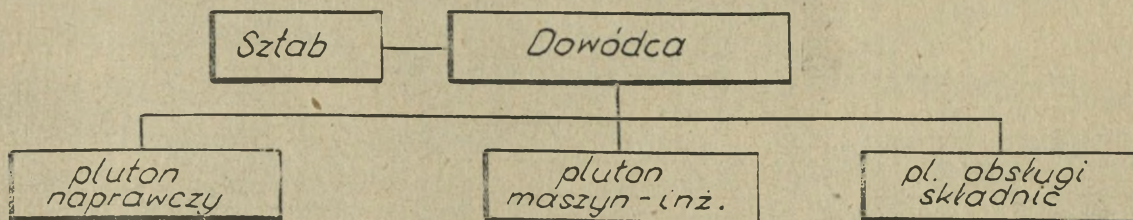 Sztab
Dowódca
pluton
naprawczy
pluton
maszyn-inż.
pl. obsługi
składnic